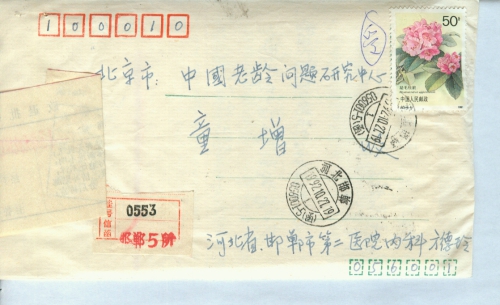 100010
50分
中国人民邮政
北京市:中國老龄问题研究中心
童增
河北邯郸
0553
邯郸5所
河北省邯郸市第二医院内科
056001